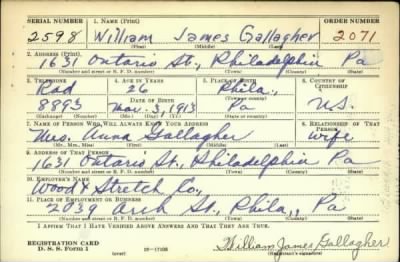 SERIAL NUMBER 1. NAME (Print) ORDER NUMBER
2598 William James Gallagher 2071
(First) (Middle) (Last)
2. ADDRESS (Print)
1631 Ontario St., Philadelphia Pa
(Number and street or R. F. D. number) (Town) (County) (State)
3. TELEPHONE 4. AGE IN YEARS 5. PLACE OF BIRTH 6. COUNTRY OF CITIZENSHIP
Rad 26 Phila.,
8893 DATE OF BIRTH (Town or county) U.S.
Mar. 3, 1913 Pa
(Exchange) (Number) (Mo.) (Day) (Yr.) (State or country)
7. NAME OF PERSON WHO WILL ALWAYS KNOW YOUR ADDRESS 8. RELATIONSHIP OF THAT PERSON
Mrs. Anna Gallagher wife
(Mr., Mrs., Miss) (First) (Middle) (Last)
9. ADDRESS OF THAT PERSON
1631 Ontario St., Philadelphia Pa
(Number and street or R. F. D. number) (Town) (County) (State)
10. EMPLOYER'S NAME
Wood & Stretch Co.,
11. PLACE OF EMPLOYMENT OR BUSINESS
2039 Arch St., Phila., Pa
(Number and street or R. F. D. number) (Town) (County) (State)
I AFFIRM THAT I HAVE VERIFIED ABOVE ANSWERS AND THAT THEY ARE TRUE.
REGISTRATION CARD
D. S. S. Form 1 16—17105 William James Gallagher
(Registrant's signature)